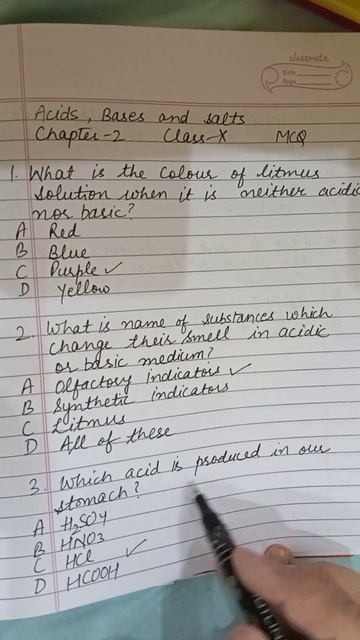 classmate
Date
Page
Acids, Bases and salts
Chapter-2 Class-X MCQ
1. What is the colour of litmus
solution when it is neither acidic
nor basic?
A Red
B Blue
C Purple ✓
D Yellow
2. What is name of substances which
change their smell in acidic
or basic medium?
A Olfactory indicators ✓
B Synthetic indicators
C Litmus
D All of these
3. Which acid is produced in our
stomach?
A H₂SO4
B HNO3
C HCl ✓
D HCOOH